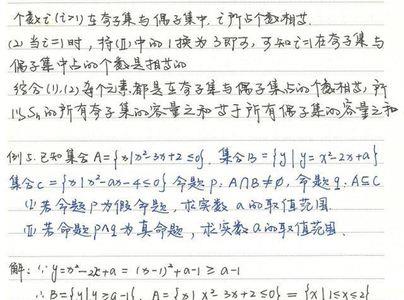 个数i(i>1)在奇子集与偶子集中,i所占个数相等.
(2)当i=1时,将(Ⅱ)中的1换为3即可,可知i=1在奇子集与
偶子集中占的个数是相等的
综合(1).(2)每个元素都是在奇子集与偶子集占的个数相等,所
以Sn的所有奇子集的容量之和等于所有偶子集的容量之和
例5.已知集合A={x|x²-3x+2≤0},集合B={y|y=x²-2x+a}
集合C={x|x²-ax-4≤0}命题p:A∩B≠∅,命题q:A⊆C
(Ⅰ)若命题P为假命题,求实数a的取值范围.
(Ⅱ)若命题p∧q为真命题,求实数a的取值范围.
解:∵y=x²-2x+a=(x-1)²+a-1≥a-1
∴B={y|y≥a-1}, A={x|x²-3x+2≤0}={x|1≤x≤2}